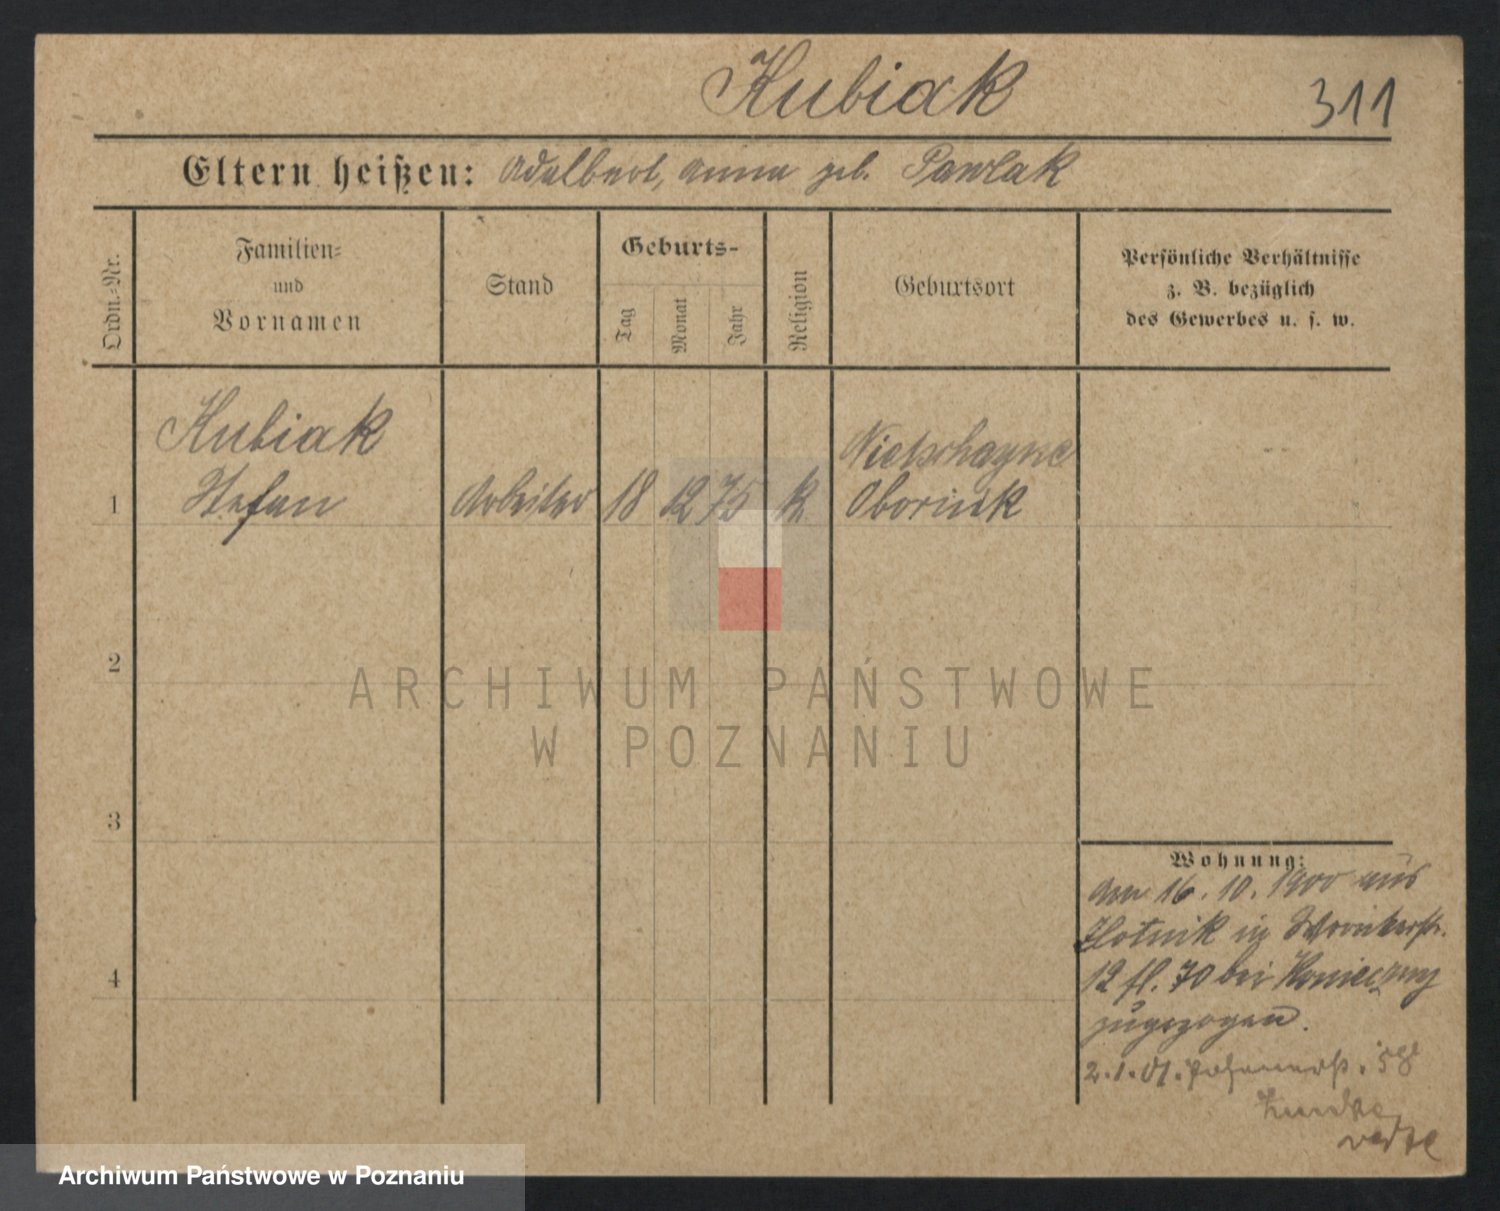 Kubiak
311
Eltern heißen: Adalbert, Anna geb. Pawlak
Ordn.-Nr.
Familien-
und
Vornamen
Stand
Geburts-
Tag
Monat
Jahr
Religion
Geburtsort
Persönliche Verhältnisse
z. B. bezüglich
des Gewerbes u. s. w.
Kubiak
Nietschayne
1 Stefan Arbeiter 18 12 75 k Obornik
2
3
4
ARCHIWUM PAŃSTWOWE
W POZNANIU
Wohnung:
den 16. 10. 1900 aus
Zlotnik in Wronkerstr.
12 fl. 70 bei Konieczny
zugezogen.
2.1.01. 58
Archiwum Państwowe w Poznaniu